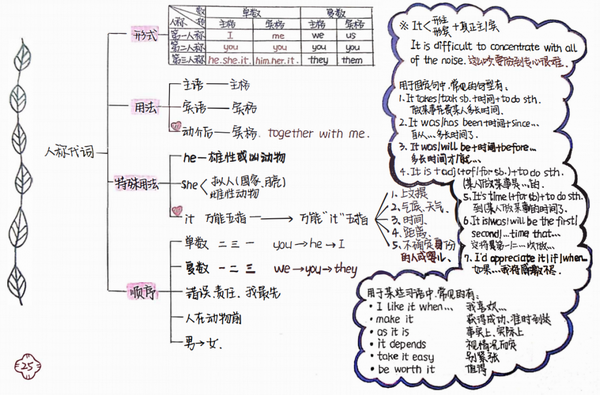 人称代词
形式
数 单数 复数
人称 格 主格 宾格 主格 宾格
第一人称 I me we us
第二人称 you you you you
第三人称 he.she.it. him.her.it. they them
用法
主语—主格
宾语—宾格
动介后—宾格. together with me.
特殊用法
he—雄性或凶动物
she
拟人(国家.月亮)
雌性动物
it 万能五指 → 万能"it"五指
1.上文提
2.气候.天气.
3.时间.
4.距离.
5.不确定身份
的人或婴儿.
顺序
单数 二三一 you→he→I
复数 一二三 we→you→they
错误.责任.我最先
人在动物前
男→女.
25
※ It +真正主/宾
It is difficult to concentrate with all
of the noise.
用于固定句中.常见的句型有:
1. It takes/took sb.+时间+to do sth.
做某事花费某人多长时间.
2. It was/has been+时间+since...
自从...多长时间了.
3. It was/will be+时间+before...
多长时间才/就...
4. It is+adj(+of/for sb.)+to do sth.
(某人)做某事是...的.
5. It's time(+for sb)+to do sth.
到(某人)做某事的时间了.
6. It is/was/will be the first/
second/...time that...
这将是第一/二...次做...
7. I'd appreciate it/if/when...
如果...我将感激不尽.
用于某些习语中.常见的有:
• I like it when... 我喜欢...
• make it 获得成功.准时到达
• as it is 事实上.实际上
• it depends 视情况而定
• take it easy 别紧张
• be worth it 值得